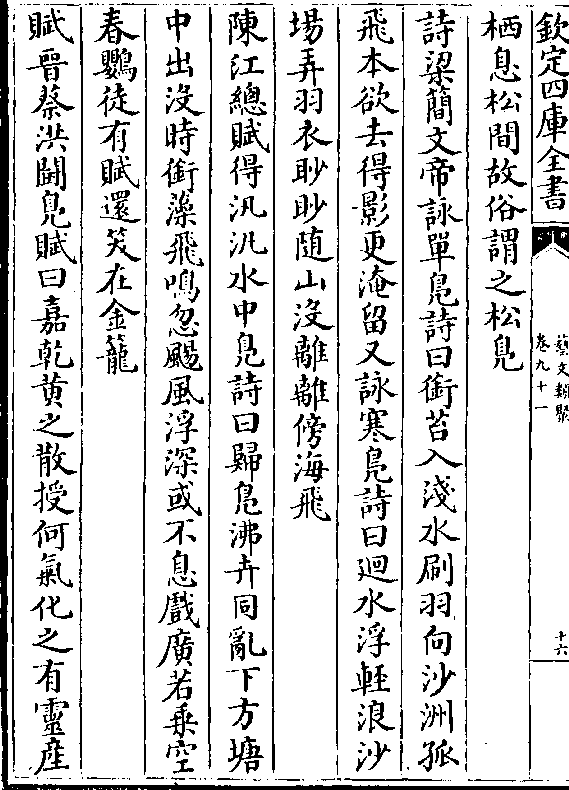 欽定四庫全書
藝文類聚
卷九十一
十六
栖息松間故俗謂之松鳧
詩梁簡文帝詠單鳧詩曰銜苔入淺水刷羽向沙洲孤
飛本欲去得影更淹留又詠寒鳧詩曰迴水浮輕浪沙
場弄羽衣眇眇隨山没離離傍海飛
陳江總賦得汎汎水中鳧詩曰歸鳧沸卉同亂下方塘
中出没時銜藻飛鳴忽颺風浮深或不息戲廣若乗空
春鸚徒有賦還笑在金籠
賦晉蔡洪鬭鳧賦曰嘉乾黄之散授何氣化之有靈産